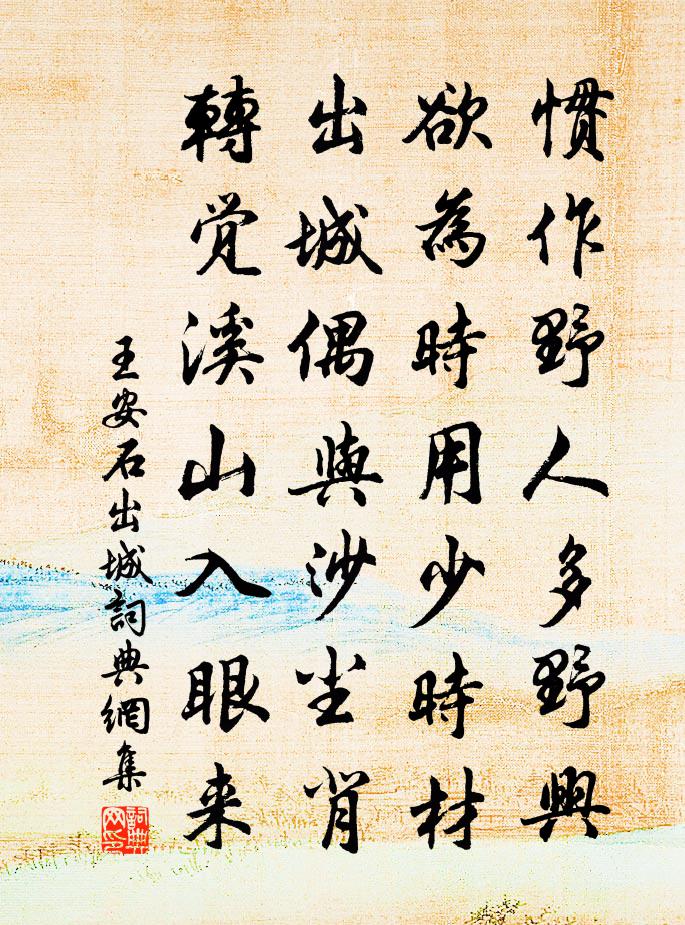 慣作野人多野興
欲為時用少時材
出城偶與沙尘背
轉覺溪山入眼来
王安石出城詞典網集
詞典
网印